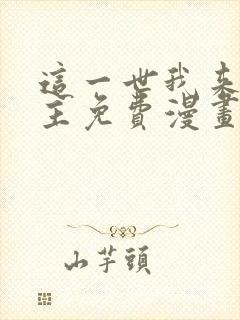 這一世我來
主免費漫畫
山芋頭